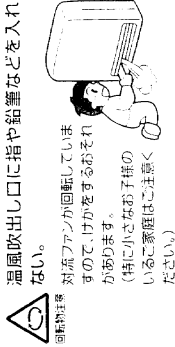 温風吹出し口に指や鉛筆などを入れ
ない。
回転物注意
対流ファンが回転していま
すので、けがをするおそれ
があります。
(特に小さなお子様の
いるご家庭はご注意く
ださい。)